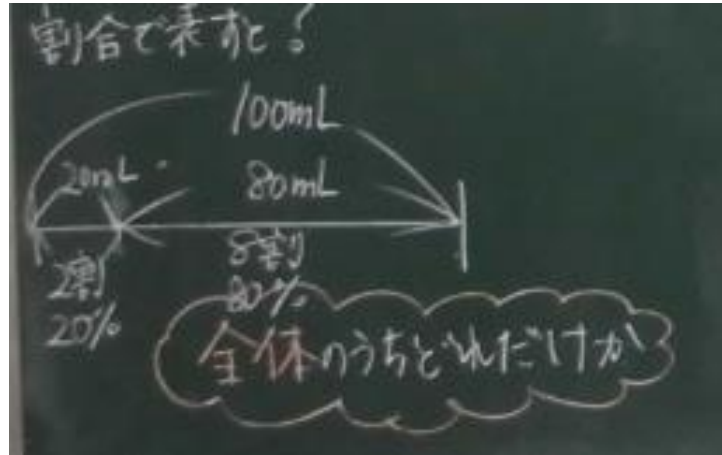 割合で表すと?
100mL
20mL 80mL
2割 8割
20% 80%
全体のうちどれだけか